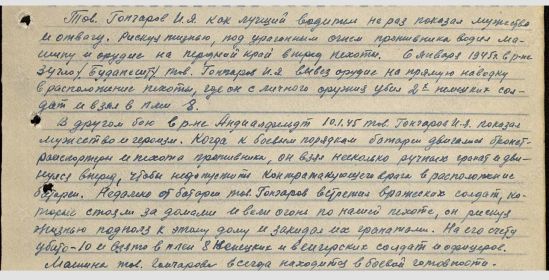 Тов. Гончаров И.Я. как лучший водитель не раз показал мужество
и отвагу. Рискуя жизнью, под ураганным огнем противника водил ма-
шину и орудие на передний край вперед пехоты. 6 января 1945 г. в р-не
Зугло /Будапешт/ тов. Гончаров И.Я вывез орудие на прямую наводку
в расположение пехоты, где он с личного оружия убил 2х немецких сол-
дат и взял в плен 8.
В другом бою в р-не 10.1.45 тов. Гончаров И.Я. показал
мужество и героизм. Когда к боевым порядкам батареи двигались бронет-
ранспортеры и пехота противника, он взял несколько ручных гранат и дви-
нулся вперед, чтобы недопустить контратакующего врага в расположение
батареи. Недалеко от батареи тов. Гончаров встретил вражеских солдат, ко-
торые стояли за домами и вели огонь по нашей пехоте, он рискуя
жизнью подполз к этому дому и закидал их гранатами. На его счету
убито-10 и взято в плен 8 немецких и венгерских солдат и офицеров.
Машина тов. Гончарова всегда находится в боевой готовности.